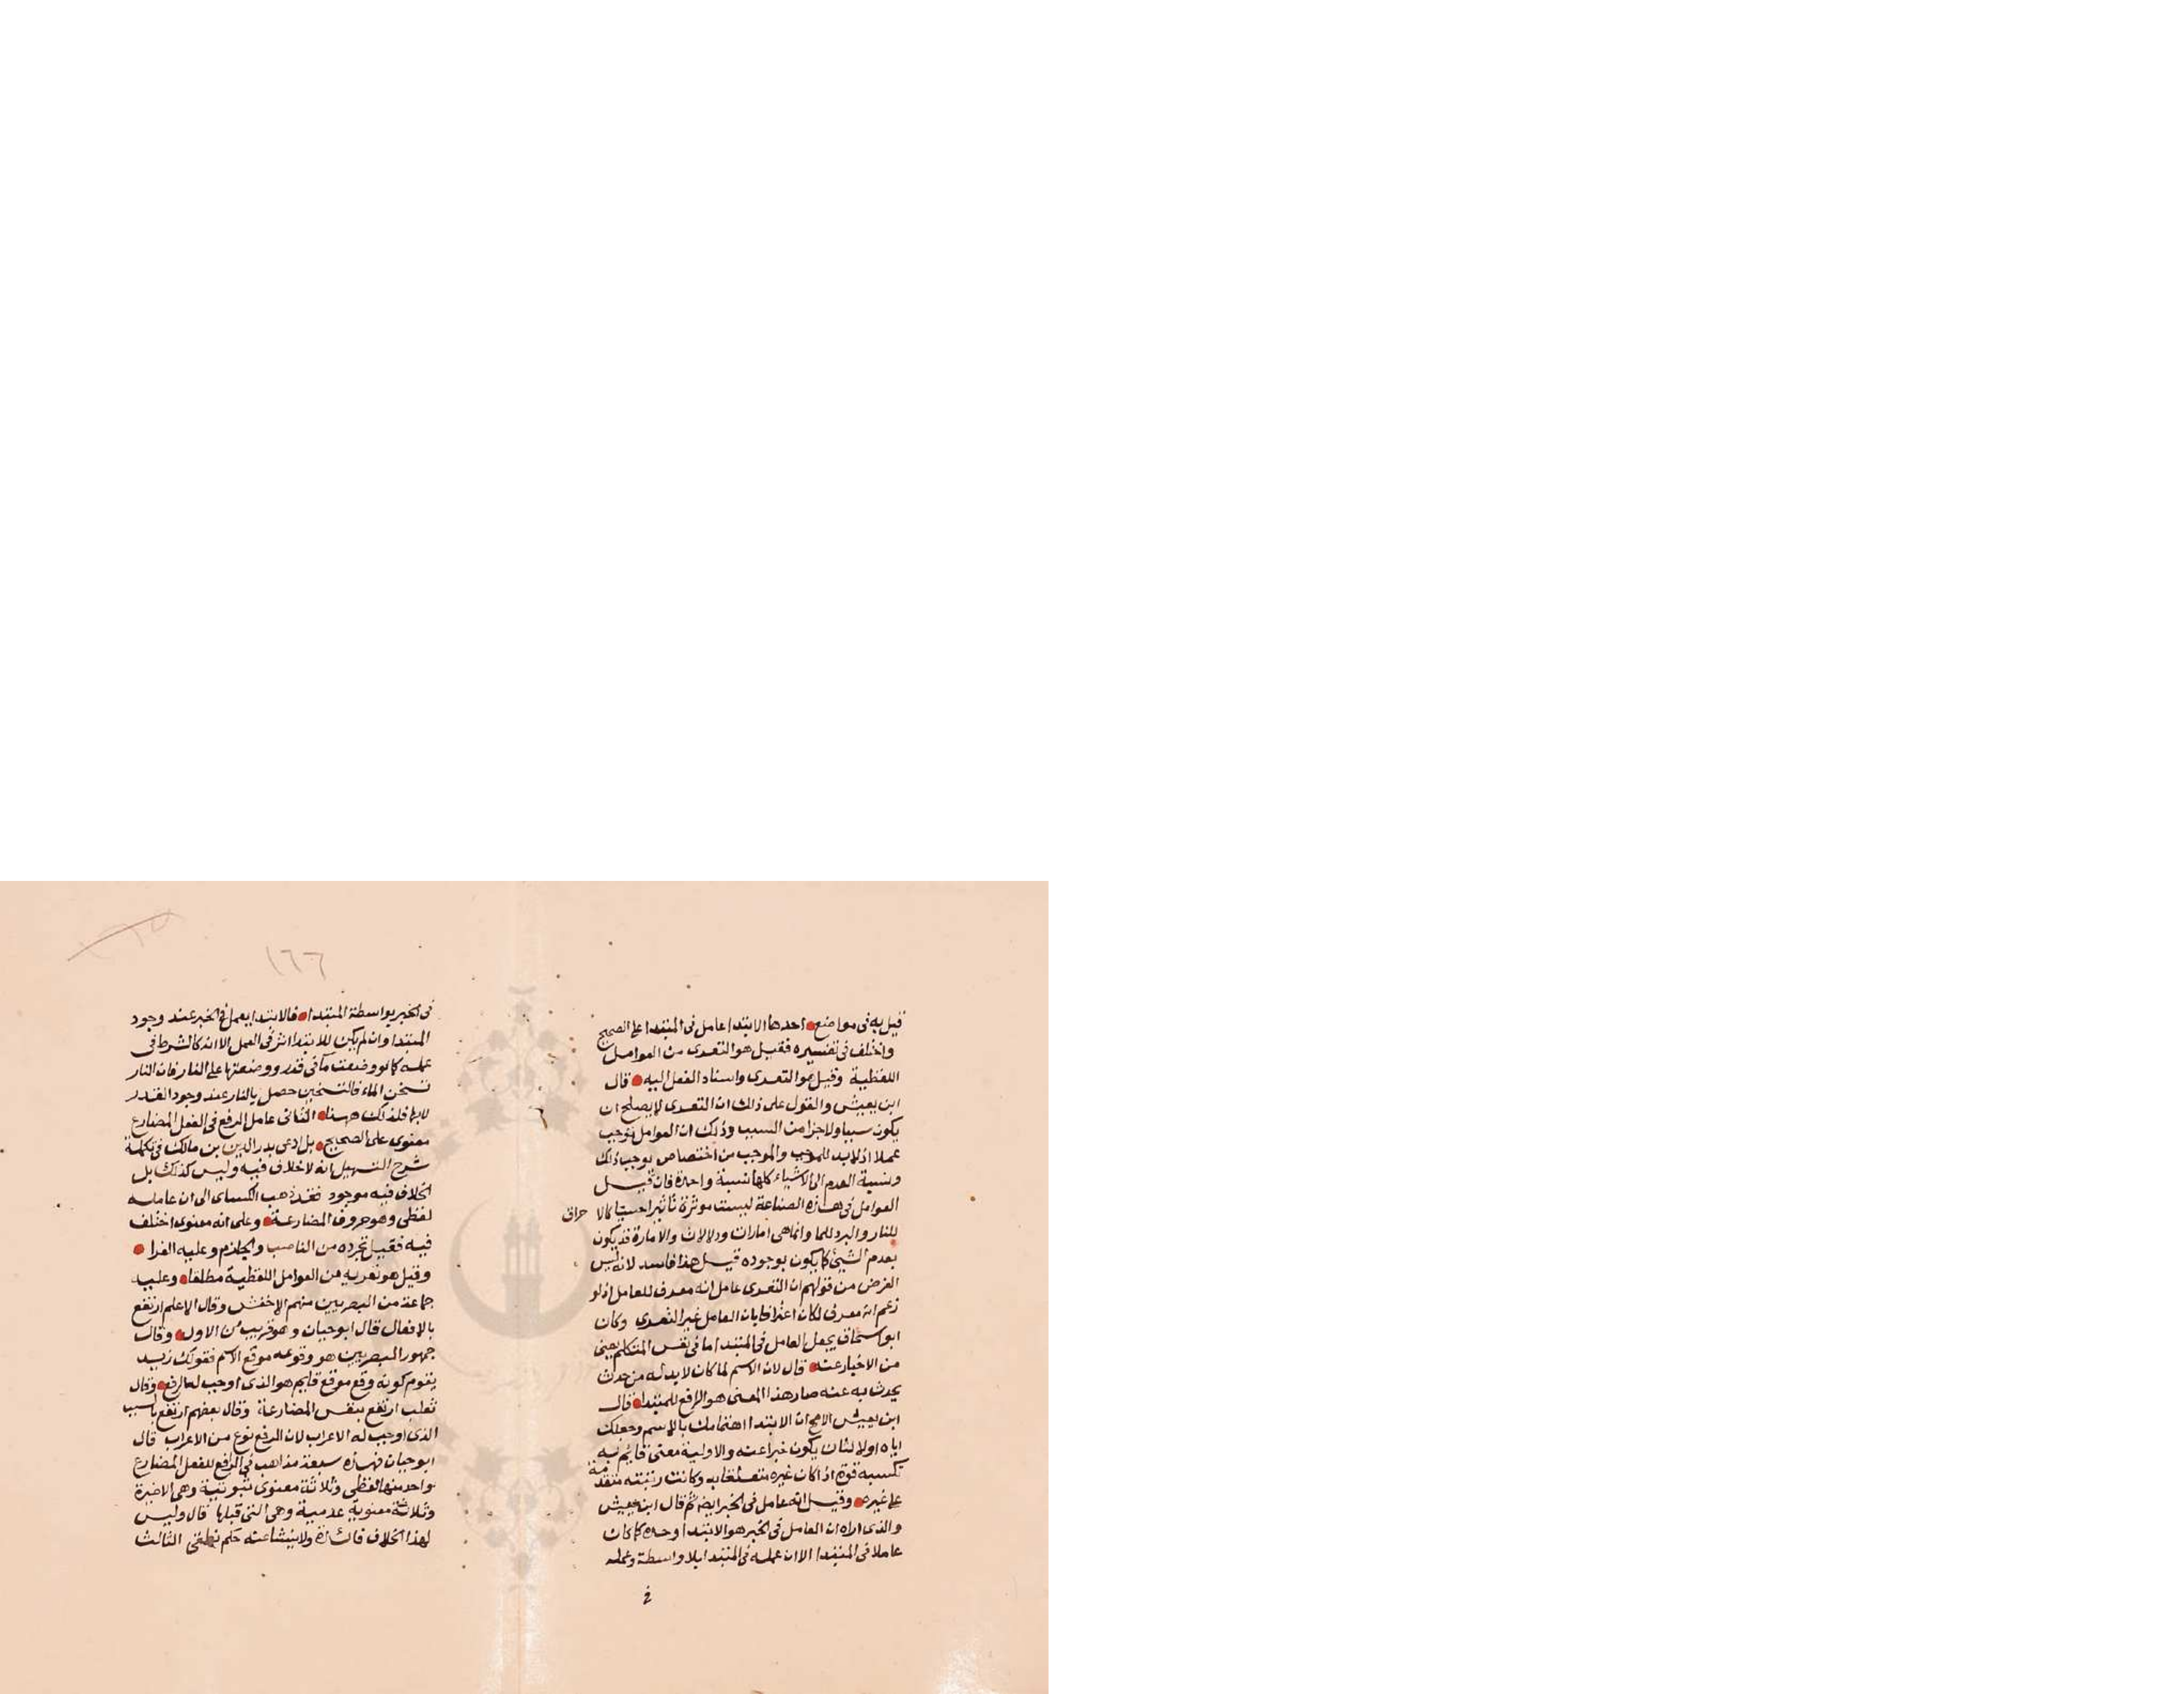 قيل به فى مواضع احدها الابتدا عامل فى المبتدا على الصحيح
واختلف فى تفسيره فقيل هو التعرى من العوامل
اللفظية وقيل هو التعرى واسناد الفعل اليه قال
ابن يعيش والقول على ذلك ان التعرى لا يصلح ان
يكون سببا ولا جزا من السبب وذلك ان العوامل توجب
عملا اذ لابد للموجب والموجب من اختصاص يوجب ذلك
ونسبة العدم الى الاشياء كلها نسبة واحدة فان قيل
العوامل فى هذه الصناعة ليست موثرة تأثيرا حسيا كالا حراق
للنار والبرد للما وانما هى امارات ودلالات والامارة قد يكون
بعدم الشيئ كما يكون بوجوده قيل هذا فاسد لانه ليس
الغرض من قولهم ان التعرى عامل انه معرف للعامل اذ لو
زعم انه معرف لكان اعترافا بان العامل غير التعرى وكان
ابو اسحاق يجعل العامل فى المبتدا ما فى نفس المتكلم يعنى
من الاخبار عنه قال لان الاسم لما كان لابد له من حدث
يحدث به عنه صار هذا المعنى هو الرافع للمبتدا قال
ابن يعيش الاصح ان الابتدا اهتمامك بالاسم وجعلك
اياه اولا لثان يكون خبرا عنه والاولية معنى قايم به
تكسبه قوة اذا كان غيره متعلقا به وكانت رتبته متقدمة
على غيره وقيل انه عامل فى الخبر ايضا ثم قال ابن يعيش
والذى اراه ان العامل فى الخبر هو الابتدا وحده كما كان
عاملا فى المبتدا الا ان عمله فى المبتدا بلا واسطة وعمله
فى
١٦٦
فى الخبر بواسطة المبتدا فالابتدا يعمل فى الخبر عند وجود
المبتدا وان لم يكن للابتدا اثر فى العمل الا انه كالشرط فى
عمله كما لو وضعت مآ فى قدر ووضعتها على النار فان النار
تسخن الماء فالتسخين حصل بالنار عند وجود القدر
لابها فلذلك هٰهنا الثانى عامل الرفع فى الفعل المضارع
معنوى على الصحيح بل ادعى بدر الدين بن مالك فى تكملة
شرح التسهيل انه لا خلاف فيه وليس كذلك بل
الخلاف فيه موجود فقد ذهب الكساى الى ان عامله
لفظى وهو حروف المضارعة وعلى انه معنوى اختلف
فيه فقيل تجرده من الناصب والجازم وعليه الفرا
وقيل هو تعريه من العوامل اللفظية مطلقا وعليه
جماعة من البصريين منهم الاخفش وقال الاعلم ارتفع
بالاهمال قال ابو حيان وهو قريب من الاول وقال
جمهور البصريين هو وقوعه موقع الاسم فقولك زيد
يقوم كونه وقع موقع قايم هو الذى اوجب له الرفع وقال
ثعلب ارتفع بنفس المضارعة وقال بعضهم ارتفع بالسبب
الذى اوجب له الاعراب لان الرفع نوع من الاعراب قال
ابو حيان فهذه سبعة مذاهب فى الرافع للفعل المضارع
واحد منها لفظى وثلاثة معنوى ثبوتية وهى الاخيرة
وثلاثة معنوية عدمية وهى التى قبلها قال وليس
لهذا الخلاف فائدة ولا ينشا عنه حكم نطقى الثالث